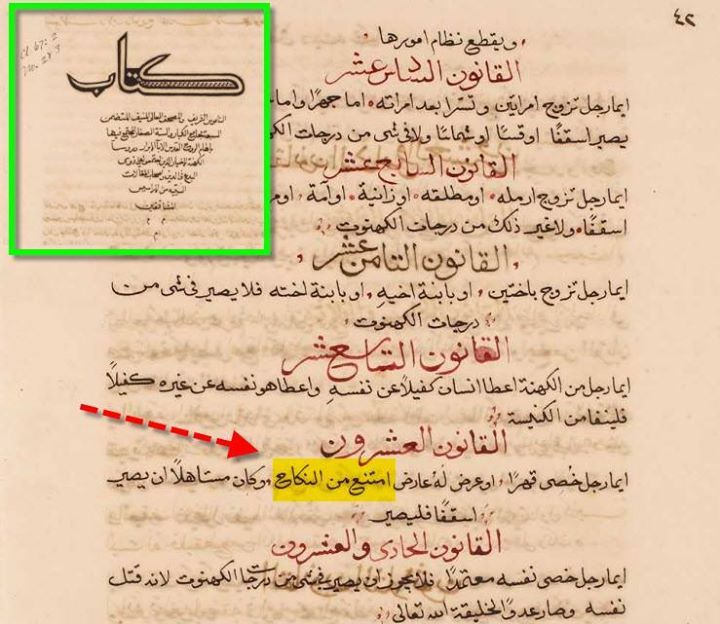 ٤٢
ويقطع نظام امورها
القانون السادس عشر
ايما رجل تزوج امراتين وتسرا بعد امراته اما جهرًا واما
يصير اسقفًا اوقسًا اوشماسًا ولا فى شى من درجات الك
القانون السابع عشر
ايما رجل تزوج ارمله اومطلقه اوزانية اوامة اوم
اسقفًا ولا غير ذلك من درجات الكهنوت
القانون الثامن عشر
ايما رجل تزوج باختين اوبابنة اخيه اوبابنة اخته فلا يصير فى شى من
درجات الكهنوت
القانون التاسع عشر
ايما رجل من الكهنة اعطا انسان كفيلاً عن نفسه واعطا هو نفسه عن غيره كفيلاً
فلينفا من الكنيسة
القانون العشرون
ايما رجل خُصى قهرًا اوعرض لهُ عارض امتنع من النكاح وكان مستاهلاً ان يصير
اسقفًا فليصير
القانون الحادى والعشرون
ايما رجل خصى نفسه معتمدًا فلا يجوز ان يصير فى شى من درجات الكهنوت لانه قتل
نفسه وصار عدوًا لخليقة الله تعالى
كتاب
الناموس الشريف والمصحف العالى المنيف المتضمن